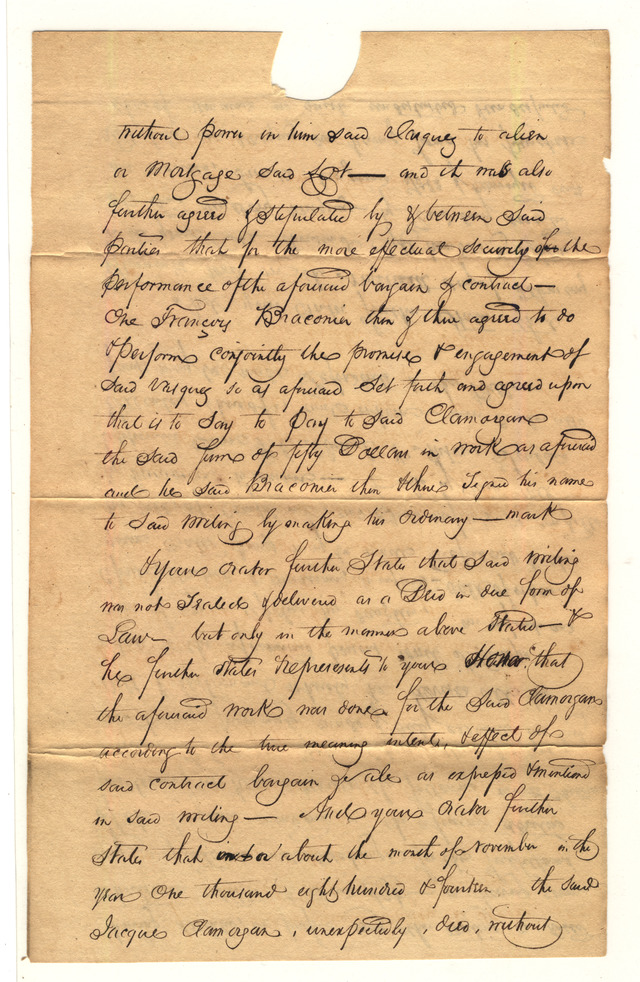 without power in him said Vasquez to alien
or Mortgage said Lot — and it was also
further agreed & stipulated by & between said
parties that for the more effectual security of the
performance of the aforesaid bargain & contract —
One François Braconier then & there agreed to do
& perform conjointly the promises & engagement of
said Vasquez so as aforesaid set forth and agreed upon
that is to say to pay to said Clamorgan
the said sum of fifty Dollars in work as aforesaid
and he said Braconier then & there signed his name
to said writing by making his ordinary — mark
& your orator further States that said writing
was not Sealed & delivered as a Deed in due form of
Law — but only in the manner above Stated — &
he further states & represents to your Honor that
the aforesaid work was done for the said Clamorgan
according to the true meaning intents, & effect of
said contract bargain & sale as expressed & mentioned
in said writing — And your orator further
States that about the month of November in the
year One thousand eight hundred & fourteen the said
Jacque Clamorgan, unexpectedly, died, without